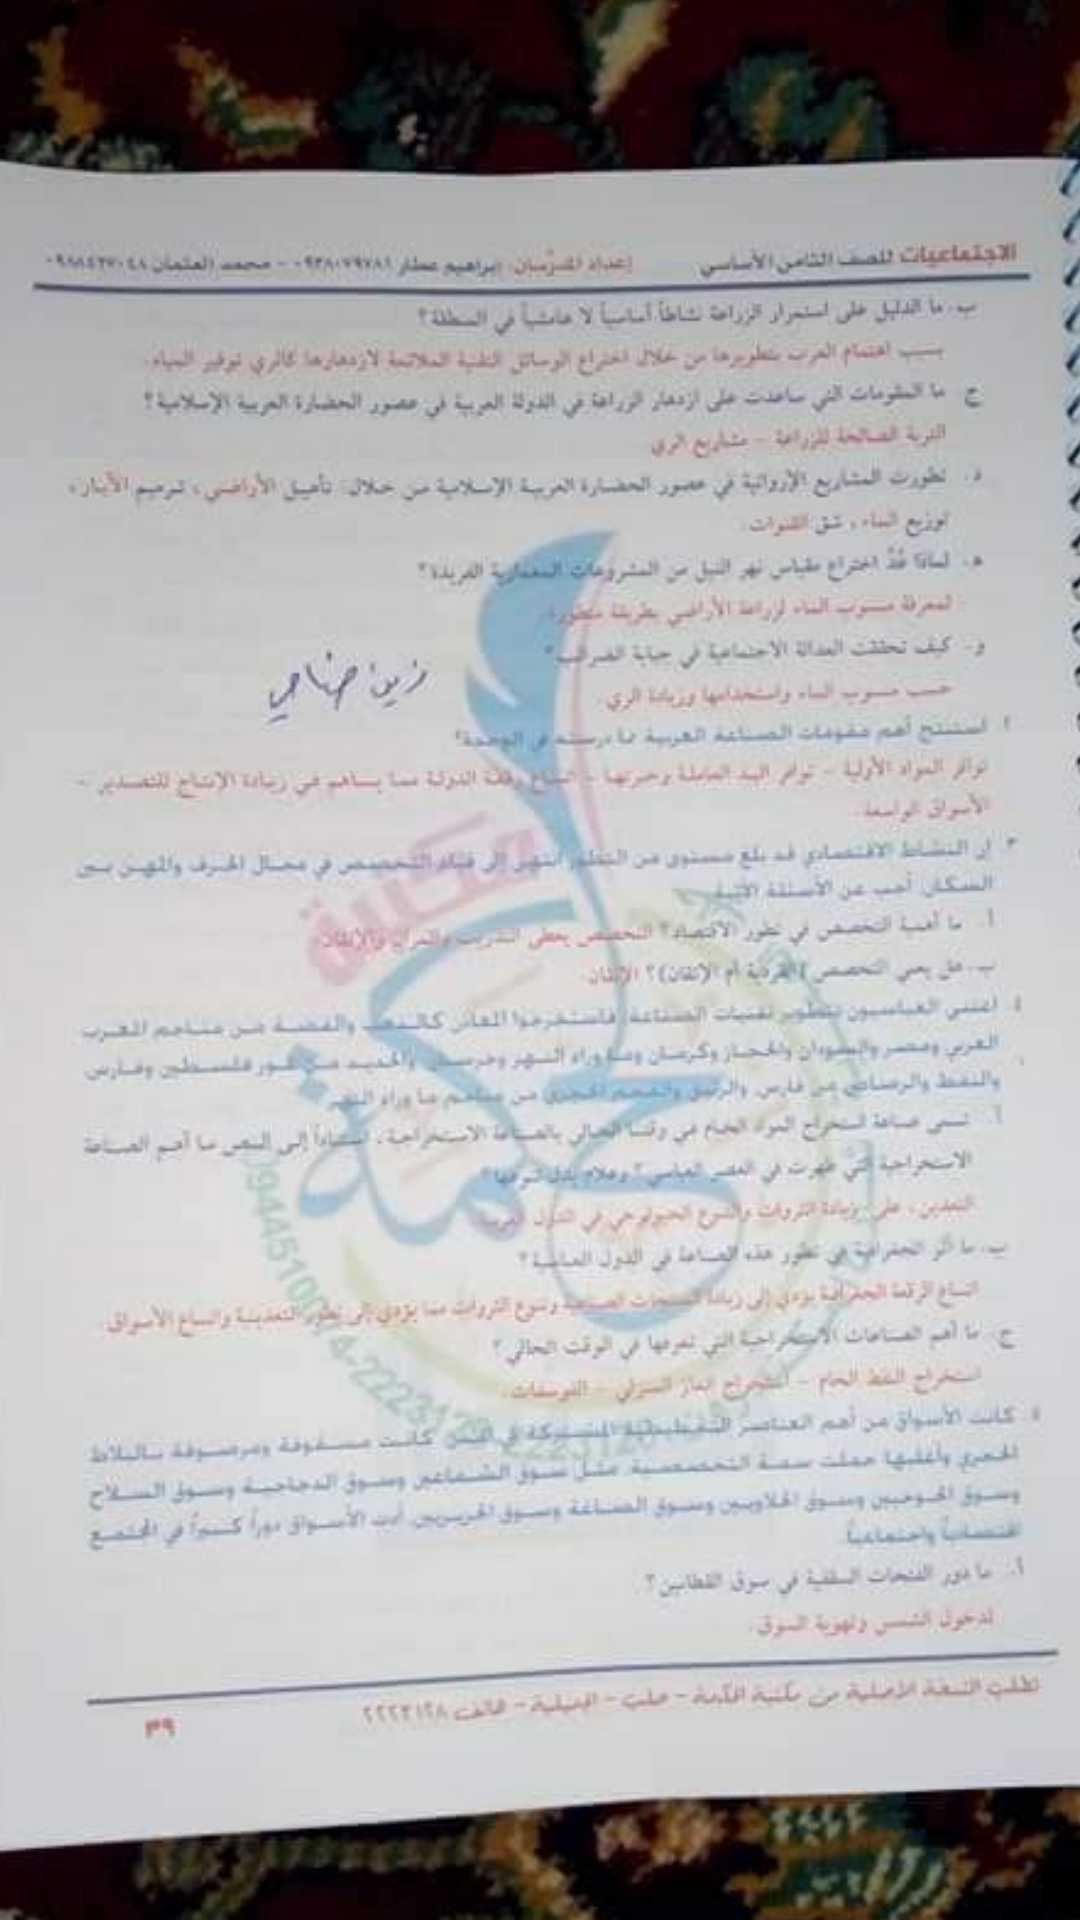 الاجتماعيات للصف الثامن الأساسي إعداد المدرّسان: إبراهيم عطار ٠٩٣٨٠٧٩٧٨١ - محمد العثمان ٠٩٨٨٤٣٧٠٤٨
ب. ما الدليل على استمرار الزراعة نشاطاً أساسياً لا هامشياً في المنطقة؟
بسبب اهتمام العرب بتطويرها من خلال اختراع الوسائل التقنية الملائمة لازدهارها كالري توفير المياه.
ج. ما المقومات التي ساعدت على ازدهار الزراعة في الدولة العربية في عصور الحضارة العربية الإسلامية؟
التربة الصالحة للزراعة - مشاريع الري
د. تطورت المشاريع الإروائية في عصور الحضارة العربية الإسلامية من خلال: تأهيل الأراضي، ترميم الآبار،
توزيع الماء، شق القنوات.
هـ. لماذا عُدّ اختراع مقياس نهر النيل من المشروعات المعمارية الفريدة؟
لمعرفة منسوب الماء لزراعة الأراضي بطريقة متطورة.
و. كيف تحققت العدالة الاجتماعية في جباية الضرائب؟
حسب منسوب الماء واستخدامها وزيادة الري.
٢. استنتج أهم مقومات الصناعة العربية مما درسته في الوحدة؟
توافر المواد الأولية - توافر اليد العاملة وخبرتها - اتساع رقعة الدولة مما يساهم في زيادة الإنتاج للتصدير -
الأسواق الواسعة.
٣. إن النشاط الاقتصادي قد بلغ مستوى من التطور انتهى إلى قيام التخصص في مجال الحرف والمهن بين
السكان أجب عن الأسئلة الآتية
أ. ما أهمية التخصص في تطور الاقتصاد؟ التخصص يعطي التدريب والمران والإتقان.
ب. هل يعني التخصص (الفردية أم الإتقان)؟ الإتقان.
٤. اعتنى العباسيون بتطوير تقنيات الصناعة فاستخرجوا المعادن كالذهب والفضة من مناجم المغرب
العربي ومصر والسودان والحجاز وكرمان وما وراء النهر وخرسان والحديد من فلسطين وفارس
والنفط والرصاص من فارس والزئبق والفحم الحجري من مناجم ما وراء النهر
أ. تسمى صناعة استخراج المواد الخام في وقتنا الحالي بالصناعة الاستخراجية، استناداً إلى النص ما أهم الصناعة
الاستخراجية التي ظهرت في العصر العباسي؟ وعلام يدل
التعدين، على زيادة الثروات والتنوع الجيولوجي في الدول العربية
ب. ما أثر الجغرافية في تطور هذه الصناعة في الدول العباسية؟
اتساع الرقعة الجغرافية يؤدي إلى زيادة المنتجات الصناعية وتنوع الثروات مما يؤدي إلى تطور التعدينية واتساع الأسواق.
ج. ما أهم الصناعات الاستخراجية التي تعرفها في الوقت الحالي؟
استخراج النفط الخام - استخراج الغاز المنزلي - الفوسفات.
٥. كانت الأسواق من أهم العناصر التخطيطية المشتركة في المدن كانت مسقوفة ومرصوفة بالبلاط
الحجري وأغلبها حملت سمة التخصصية مثل سوق الشماعين وسوق الدجاجية وسوق السلاح
وسوق الجوخيين وسوق الحلاويين وسوق الصاغة وسوق الحريريين أدت الأسواق دوراً كبيراً في المجتمع
اقتصادياً واجتماعياً.
أ. ما دور الفتحات السقفية في سوق القطانين؟
لدخول الشمس وتهوية السوق.
تطلب النسخة الأصلية من مكتبة الحكمة - حلب - الجميلية - هاتف ٢٢٢٣١٢٨
٣٩
مكتبة
الحكمة